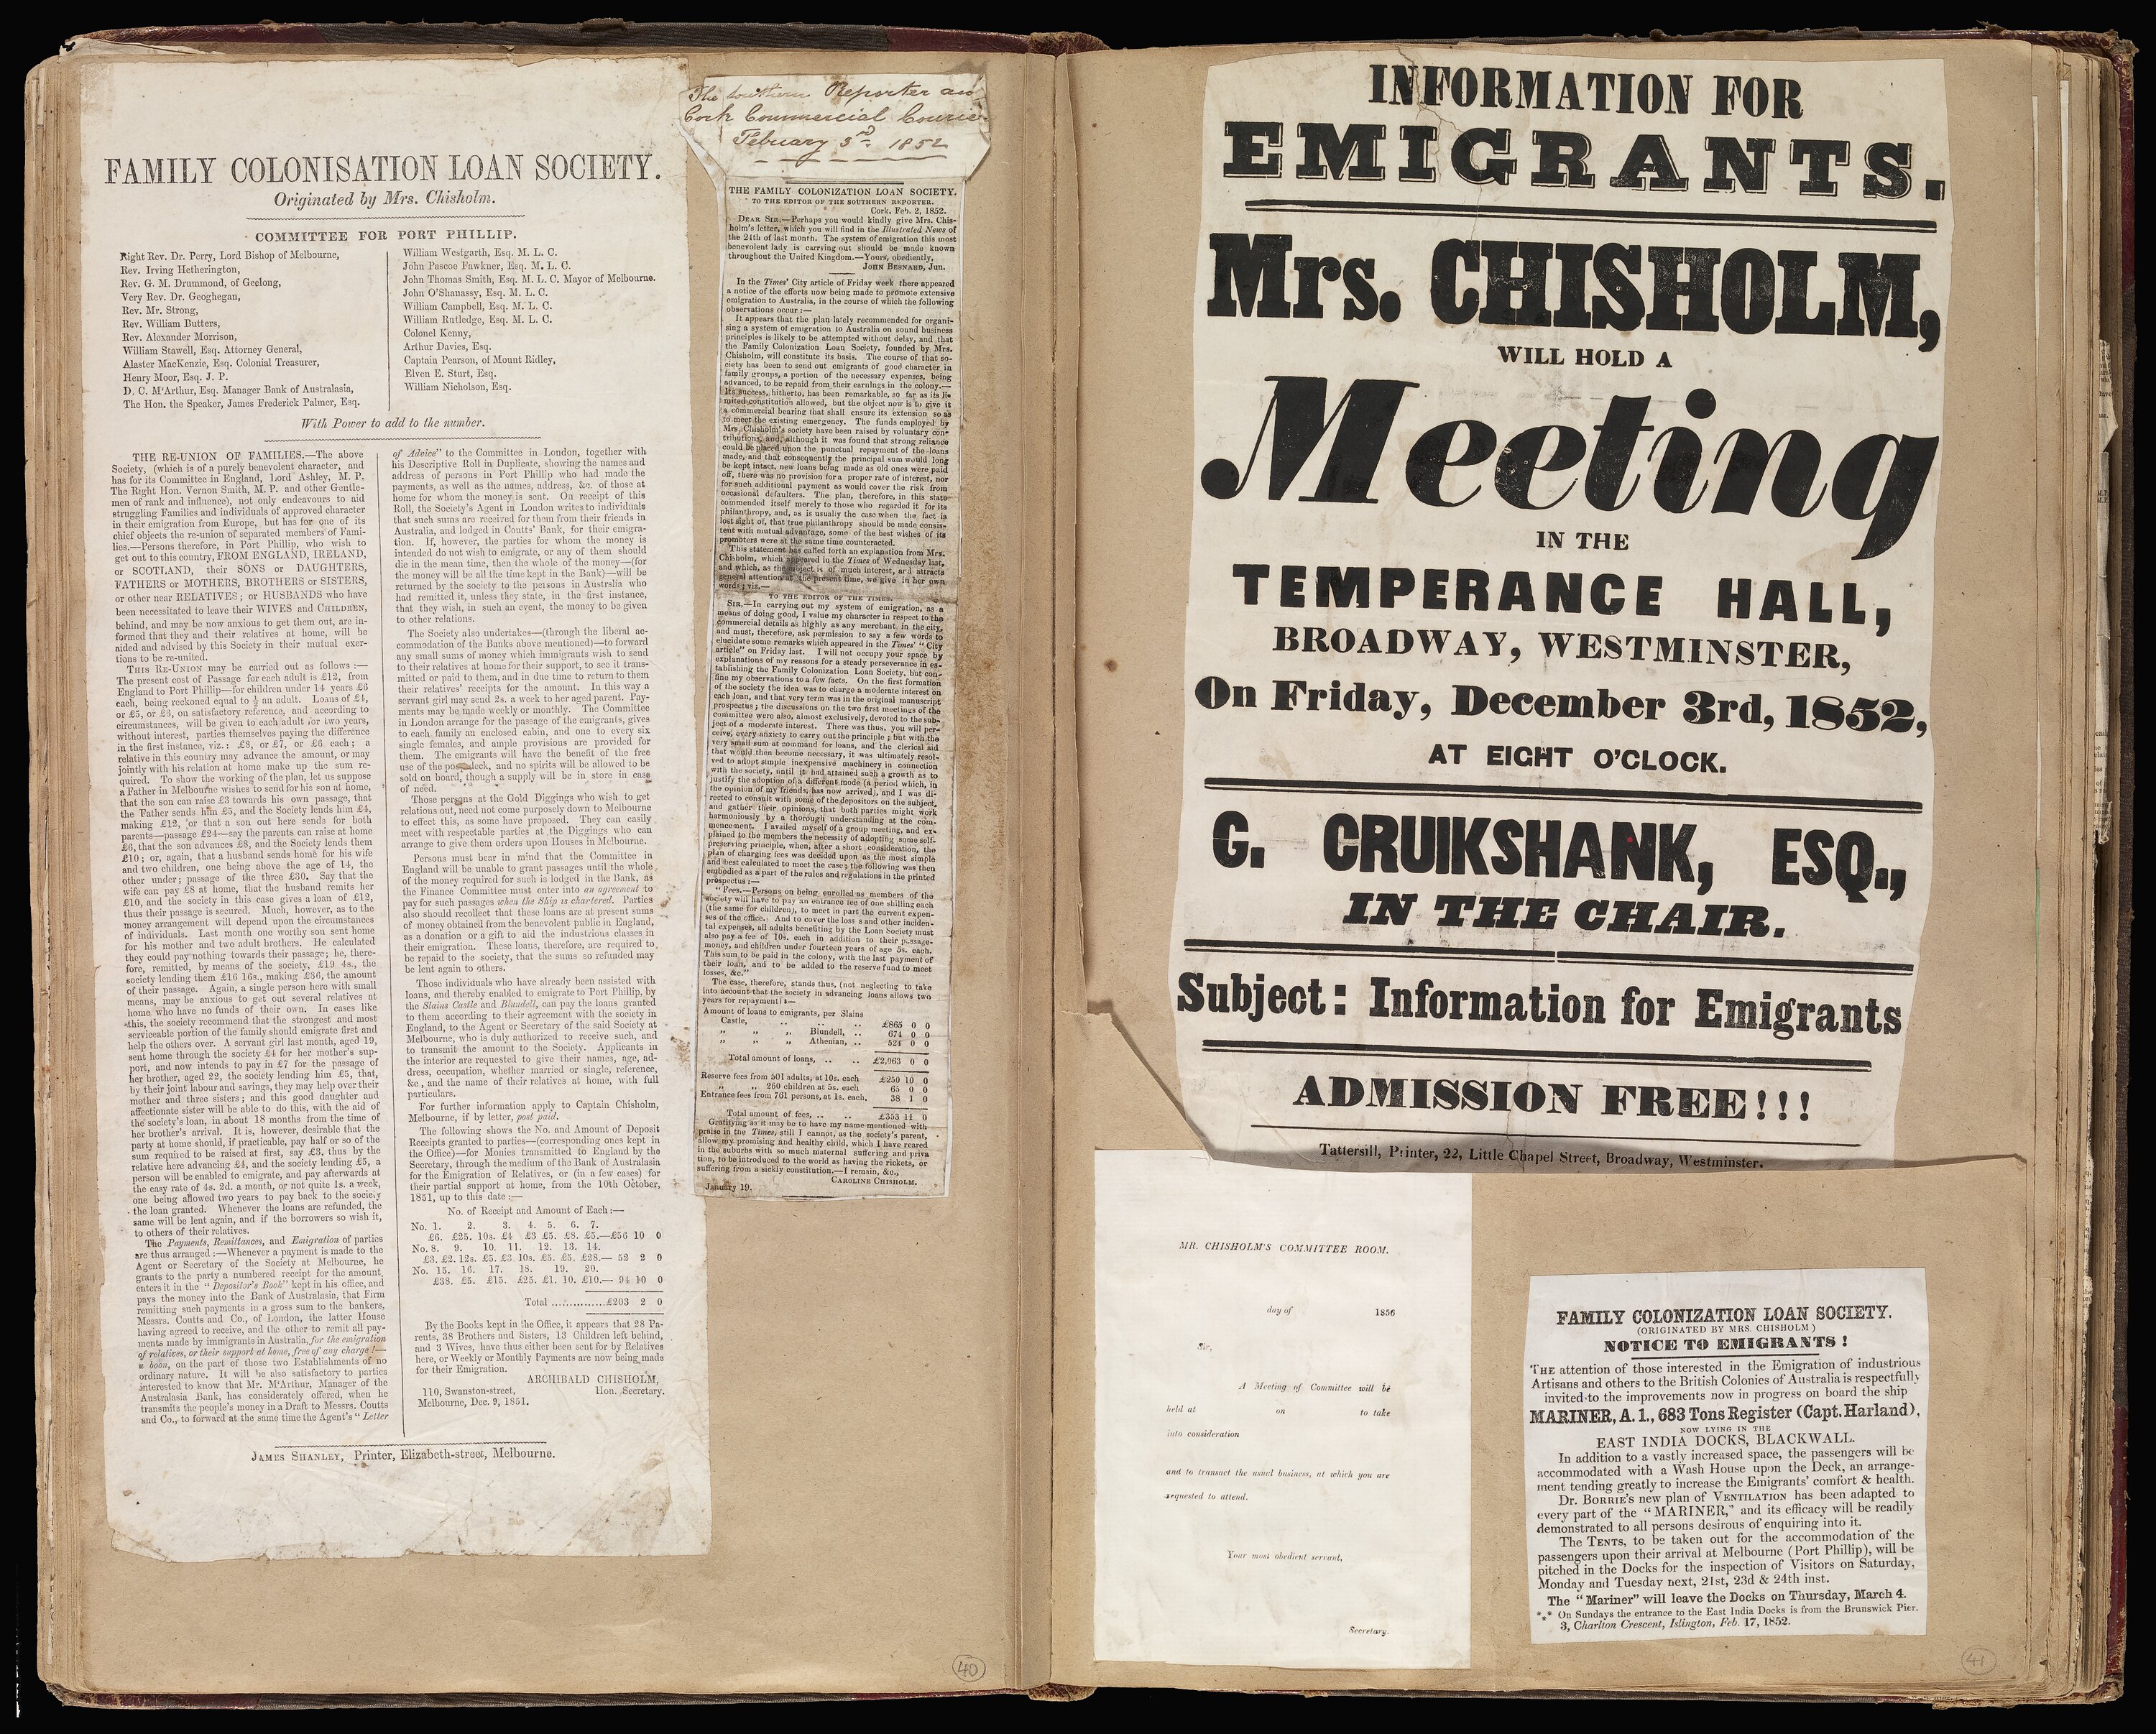 FAMILY COLONISATION LOAN SOCIETY.
Originated by Mrs. Chisholm.
COMMITTEE FOR PORT PHILLIP.
Right Rev. Dr. Perry, Lord Bishop of Melbourne,
Rev. Irving Hetherington,
Rev. G. M. Drummond, of Geelong,
Very Rev. Dr. Geoghegan,
Rev. Mr. Strong,
Rev. William Butters,
Rev. Alexander Morrison,
William Stawell, Esq. Attorney General,
Alaster MacKenzie, Esq. Colonial Treasurer,
Henry Moor, Esq. J. P.
D. C. M'Arthur, Esq. Manager Bank of Australasia,
The Hon. the Speaker, James Frederick Palmer, Esq.
William Westgarth, Esq. M. L. C.
John Pascoe Fawkner, Esq. M. L. C.
John Thomas Smith, Esq. M. L. C. Mayor of Melbourne.
John O'Shanassy, Esq. M. L. C.
William Campbell, Esq. M. L. C.
William Rutledge, Esq. M. L. C.
Colonel Kenny,
Arthur Davies, Esq.
Captain Pearson, of Mount Ridley,
Elven E. Sturt, Esq.
William Nicholson, Esq.
With Power to add to the number.
THE RE-UNION OF FAMILIES.—The above
Society, (which is of a purely benevolent character, and
has for its Committee in England, Lord Ashley, M. P.
The Right Hon. Vernon Smith, M. P. and other Gentle-
men of rank and influence), not only endeavours to aid
struggling Families and individuals of approved character
in their emigration from Europe, but has for one of its
chief objects the re-union of separated members of Fami-
lies.—Persons therefore, in Port Phillip, who wish to
get out to this country, FROM ENGLAND, IRELAND,
or SCOTLAND, their SONS or DAUGHTERS,
FATHERS or MOTHERS, BROTHERS or SISTERS,
or other near RELATIVES; or HUSBANDS who have
been necessitated to leave their WIVES and CHILDREN,
behind, and may be now anxious to get them out, are in-
formed that they and their relatives at home, will be
aided and advised by this Society in their mutual exer-
tions to be re-united.
THIS RE-UNION may be carried out as follows:—
The present cost of Passage for each adult is £12, from
England to Port Phillip—for children under 14 years £6
each, being reckoned equal to ½ an adult. Loans of £4,
or £5, or £6, on satisfactory reference, and according to
circumstances, will be given to each adult for two years,
without interest, parties themselves paying the difference
in the first instance, viz.: £8, or £7, or £6 each; a
relative in this country may advance the amount, or may
jointly with his relation at home make up the sum re-
quired. To show the working of the plan, let us suppose
a Father in Melbourne wishes to send for his son at home,
that the son can raise £3 towards his own passage, that
the Father sends him £5, and the Society lends him £4,
making £12, or that a son out here sends for both
parents—passage £24—say the parents can raise at home
£6, that the son advances £8, and the Society lends them
£10; or, again, that a husband sends home for his wife
and two children, one being above the age of 14, the
other under; passage of the three £30. Say that the
wife can pay £8 at home, that the husband remits her
£10, and the society in this case gives a loan of £12,
thus their passage is secured. Much, however, as to the
money arrangement will depend upon the circumstances
of individuals. Last month one worthy son sent home
for his mother and two adult brothers. He calculated
they could pay nothing towards their passage; he, there-
fore, remitted, by means of the society, £19 4s., the
society lending them £16 16s., making £36, the amount
of their passage. Again, a single person here with small
means, may be anxious to get out several relatives at
home who have no funds of their own. In cases like
this, the society recommend that the strongest and most
serviceable portion of the family should emigrate first and
help the others over. A servant girl last month, aged 19,
sent home through the society £4 for her mother's sup-
port, and now intends to pay in £7 for the passage of
her brother, aged 22, the society lending him £5, that,
by their joint labour and savings, they may help over their
mother and three sisters; and this good daughter and
affectionate sister will be able to do this, with the aid of
the society's loan, in about 18 months from the time of
her brother's arrival. It is, however, desirable that the
party at home should, if practicable, pay half or so of the
sum required to be raised at first, say £3, thus by the
relative here advancing £4, and the society lending £5, a
person will be enabled to emigrate, and pay afterwards at
the easy rate of 4s. 2d. a month, or not quite 1s. a week,
one being allowed two years to pay back to the society
the loan granted. Whenever the loans are refunded, the
same will be lent again, and if the borrowers so wish it,
to others of their relatives.
The Payments, Remittances, and Emigration of parties
are thus arranged:—Whenever a payment is made to the
Agent or Secretary of the Society at Melbourne, he
grants to the party a numbered receipt for the amount,
enters it in the "Depositor's Book" kept in his office, and
pays the money into the Bank of Australasia, that Firm
remitting such payments in a gross sum to the bankers,
Messrs. Coutts and Co., of London, the latter House
having agreed to receive, and the other to remit all pay-
ments made by immigrants in Australia, for the emigration
of relatives, or their support at home, free of any charge!—
a boon, on the part of those two Establishments of no
ordinary nature. It will be also satisfactory to parties
interested to know that Mr. M'Arthur, Manager of the
Australasia Bank, has considerately offered, when he
transmits the people's money in a Draft to Messrs. Coutts
and Co., to forward at the same time the Agent's "Letter
of Advice" to the Committee in London, together with
his Descriptive Roll in Duplicate, showing the names and
address of persons in Port Phillip who had made the
payments, as well as the names, address, &c. of those at
home for whom the money is sent. On receipt of this
Roll, the Society's Agent in London writes to individuals
that such sums are received for them from their friends in
Australia, and lodged in Coutts' Bank, for their emigra-
tion. If, however, the parties for whom the money is
intended do not wish to emigrate, or any of them should
die in the mean time, then the whole of the money—(for
the money will be all the time kept in the Bank)—will be
returned by the society to the persons in Australia who
had remitted it, unless they state, in the first instance,
that they wish, in such an event, the money to be given
to other relations.
The Society also undertakes—(through the liberal ac-
commodation of the Banks above mentioned)—to forward
any small sums of money which immigrants wish to send
to their relatives at home for their support, to see it trans-
mitted or paid to them, and in due time to return to them
their relatives' receipts for the amount. In this way a
servant girl may send 2s. a week to her aged parent. Pay-
ments may be made weekly or monthly. The Committee
in London arrange for the passage of the emigrants, gives
to each family an enclosed cabin, and one to every six
single females, and ample provisions are provided for
them. The emigrants will have the benefit of the free
use of the poop deck, and no spirits will be allowed to be
sold on board, though a supply will be in store in case
of need.
Those persons at the Gold Diggings who wish to get
relations out, need not come purposely down to Melbourne
to effect this, as some have proposed. They can easily
meet with respectable parties at the Diggings who can
arrange to give them orders upon Houses in Melbourne.
Persons must bear in mind that the Committee in
England will be unable to grant passages until the whole
of the money required for such is lodged in the Bank, as
the Finance Committee must enter into an agreement to
pay for such passages when the Ship is chartered. Parties
also should recollect that these loans are at present sums
of money obtained from the benevolent public in England,
as a donation or a gift to aid the industrious classes in
their emigration. These loans, therefore, are required to
be repaid to the society, that the sums so refunded may
be lent again to others.
Those individuals who have already been assisted with
loans, and thereby enabled to emigrate to Port Phillip, by
the Slains Castle and Blundell, can pay the loans granted
to them according to their agreement with the society in
England, to the Agent or Secretary of the said Society at
Melbourne, who is duly authorized to receive such, and
to transmit the amount to the Society. Applicants in
the interior are requested to give their names, age, ad-
dress, occupation, whether married or single, reference,
&c., and the name of their relatives at home, with full
particulars.
For further information apply to Captain Chisholm,
Melbourne, if by letter, post paid.
The following shows the No. and Amount of Deposit
Receipts granted to parties—(corresponding ones kept in
the Office)—for Monies transmitted to England by the
Secretary, through the medium of the Bank of Australasia
for the Emigration of Relatives, or (in a few cases) for
their partial support at home, from the 10th October,
1851, up to this date:—
No. of Receipt and Amount of Each:—
No. 1. 2. 3. 4. 5. 6. 7.
£6. £25. 10s. £4 £3 £5. £8. £5.—£56 10 0
No. 8. 9. 10. 11. 12. 13. 14.
£3. £2. 12s. £5. £3. 10s. £5. £5. £28.— 52 2 0
No. 15. 16. 17. 18. 19. 20.
£38. £5. £15. £25. £1. 10. £10.— 94 10 0
Total ..............£203 2 0
By the Books kept in the Office, it appears that 28 Pa-
rents, 38 Brothers and Sisters, 13 Children left behind,
and 3 Wives, have thus either been sent for by Relatives
here, or Weekly or Monthly Payments are now being made
for their Emigration.
ARCHIBALD CHISHOLM,
110, Swanston-street, Hon. Secretary.
Melbourne, Dec. 9, 1851.
JAMES SHANLEY, Printer, Elizabeth-street, Melbourne.
The Southern Reporter and
Cork Commercial Courier
February 3rd 1852
THE FAMILY COLONIZATION LOAN SOCIETY.
TO THE EDITOR OF THE SOUTHERN REPORTER.
Cork, Feb. 2, 1852.
DEAR SIR,—Perhaps you would kindly give Mrs. Chis-
holm's letter, which you will find in the Illustrated News of
the 24th of last month. The system of emigration this most
benevolent lady is carrying out should be made known
throughout the United Kingdom.—Yours, obediently,
JOHN BESNARD, Jun.
In the Times' City article of Friday week there appeared
a notice of the efforts now being made to promote extensive
emigration to Australia, in the course of which the following
observations occur:—
It appears that the plan lately recommended for organi-
sing a system of emigration to Australia on sound business
principles is likely to be attempted without delay, and that
the Family Colonization Loan Society, founded by Mrs.
Chisholm, will constitute its basis. The course of that so-
ciety has been to send out emigrants of good character in
family groups, a portion of the necessary expenses, being
advanced, to be repaid from their earnings in the colony.—
Its success, hitherto, has been remarkable, so far as its li-
mited constitution allowed, but the object now is to give it
a commercial bearing that shall ensure its extension so as
to meet the existing emergency. The funds employed by
Mrs. Chisholm's society have been raised by voluntary con-
tributions, and, although it was found that strong reliance
could be placed upon the punctual repayment of the loans
made, and that consequently the principal sum would long
be kept intact, new loans being made as old ones were paid
off, there was no provision for a proper rate of interest, nor
for such additional payment as would cover the risk from
occasional defaulters. The plan, therefore, in this state
commended itself merely to those who regarded it for its
philanthropy, and, as is usually the case when the fact is
lost sight of, that true philanthropy should be made consis-
tent with mutual advantage, some of the best wishes of its
promoters were at the same time counteracted.
This statement has called forth an explanation from Mrs.
Chisholm, which appeared in the Times of Wednesday last,
and which, as the subject is of much interest, and attracts
general attention at the present time, we give in her own
words; viz.—
TO THE EDITOR OF THE TIMES.
SIR,—In carrying out my system of emigration, as a
means of doing good, I value my character in respect to the
commercial details as highly as any merchant in the city,
and must, therefore, ask permission to say a few words to
elucidate some remarks which appeared in the Times' "City
article" on Friday last. I will not occupy your space by
explanations of my reasons for a steady perseverance in es-
tablishing the Family Colonization Loan Society, but con-
fine my observations to a few facts. On the first formation
of the society the idea was to charge a moderate interest on
each loan, and that very term was in the original manuscript
prospectus; the discussions on the two first meetings of the
committee were also, almost exclusively, devoted to the sub-
ject of a moderate interest. There was thus, you will per-
ceive, every anxiety to carry out the principle; but with the
very small sum at command for loans, and the clerical aid
that would then become necessary, it was ultimately resol-
ved to adopt simple inexpensive machinery in connection
with the society, until it had attained such a growth as to
justify the adoption of a different mode (a period which, in
the opinion of my friends, has now arrived), and I was di-
rected to consult with some of the depositors on the subject,
and gather their opinions, that both parties might work
harmoniously by a thorough understanding at the com-
mencement. I availed myself of a group meeting, and ex-
plained to the members the necessity of adopting some self-
preserving principle, when, after a short consideration, the
plan of charging fees was decided upon as the most simple
and best calculated to meet the case; the following was then
embodied as a part of the rules and regulations in the printed
prospectus:—
"Fees.—Persons on being enrolled as members of the
society will have to pay an entrance fee of one shilling each
(the same for children), to meet in part the current expen-
ses of the office. And to cover the loss s and other inciden-
tal expenses, all adults benefiting by the Loan Society must
also pay a fee of 10s. each in addition to their passage-
money, and children under fourteen years of age 5s. each.
This sum to be paid in the colony, with the last payment of
their loan, and to be added to the reserve fund to meet
losses, &c."
The case, therefore, stands thus, (not neglecting to take
into account that the society in advancing loans allows two
years for repayment):—
Amount of loans to emigrants, per Slains
Castle, .. .. .. £865 0 0
„ „ „ Blundell, .. 674 0 0
„ „ „ Athenian, .. 524 0 0
Total amount of loans, .. .. £2,063 0 0
Reserve fees from 501 adults, at 10s. each £250 10 0
„ „ 260 children at 5s. each 65 0 0
Entrance fees from 761 persons, at 1s. each, 38 1 0
Total amount of fees, .. .. £353 11 0
Gratifying as it may be to have my name mentioned with
praise in the Times, still I cannot, as the society's parent,
allow my promising and healthy child, which I have reared
in the suburbs with so much maternal suffering and priva
tion, to be introduced to the world as having the rickets, or
suffering from a sickly constitution.—I remain, &c.,
CAROLINE CHISHOLM.
January 19.
40
INFORMATION FOR
EMIGRANTS.
Mrs. CHISHOLM,
WILL HOLD A
Meeting
IN THE
TEMPERANCE HALL,
BROADWAY, WESTMINSTER,
On Friday, December 3rd, 1852,
AT EIGHT O'CLOCK.
G. CRUIKSHANK, ESQ.,
IN THE CHAIR.
Subject: Information for Emigrants
ADMISSION FREE!!!
Tattersill, Printer, 22, Little Chapel Street, Broadway, Westminster.
MR. CHISHOLM'S COMMITTEE ROOM.
day of 1856
Sir,
A Meeting of Committee will be
held at on to take
into consideration
and to transact the usual business, at which you are
requested to attend.
Your most obedient servant,
Secretary.
FAMILY COLONIZATION LOAN SOCIETY.
(ORIGINATED BY MRS. CHISHOLM)
NOTICE TO EMIGRANTS!
THE attention of those interested in the Emigration of industrious
Artisans and others to the British Colonies of Australia is respectfully
invited to the improvements now in progress on board the ship
MARINER, A. 1., 683 Tons Register (Capt. Harland),
NOW LYING IN THE
EAST INDIA DOCKS, BLACKWALL.
In addition to a vastly increased space, the passengers will be
accommodated with a Wash House upon the Deck, an arrange-
ment tending greatly to increase the Emigrants' comfort & health.
Dr. BORRIE'S new plan of VENTILATION has been adapted to
every part of the "MARINER," and its efficacy will be readily
demonstrated to all persons desirous of enquiring into it.
The TENTS, to be taken out for the accommodation of the
passengers upon their arrival at Melbourne (Port Phillip), will be
pitched in the Docks for the inspection of Visitors on Saturday,
Monday and Tuesday next, 21st, 23d & 24th inst.
The "Mariner" will leave the Docks on Thursday, March 4.
*** On Sundays the entrance to the East India Docks is from the Brunswick Pier.
3, Charlton Crescent, Islington, Feb. 17, 1852.
41